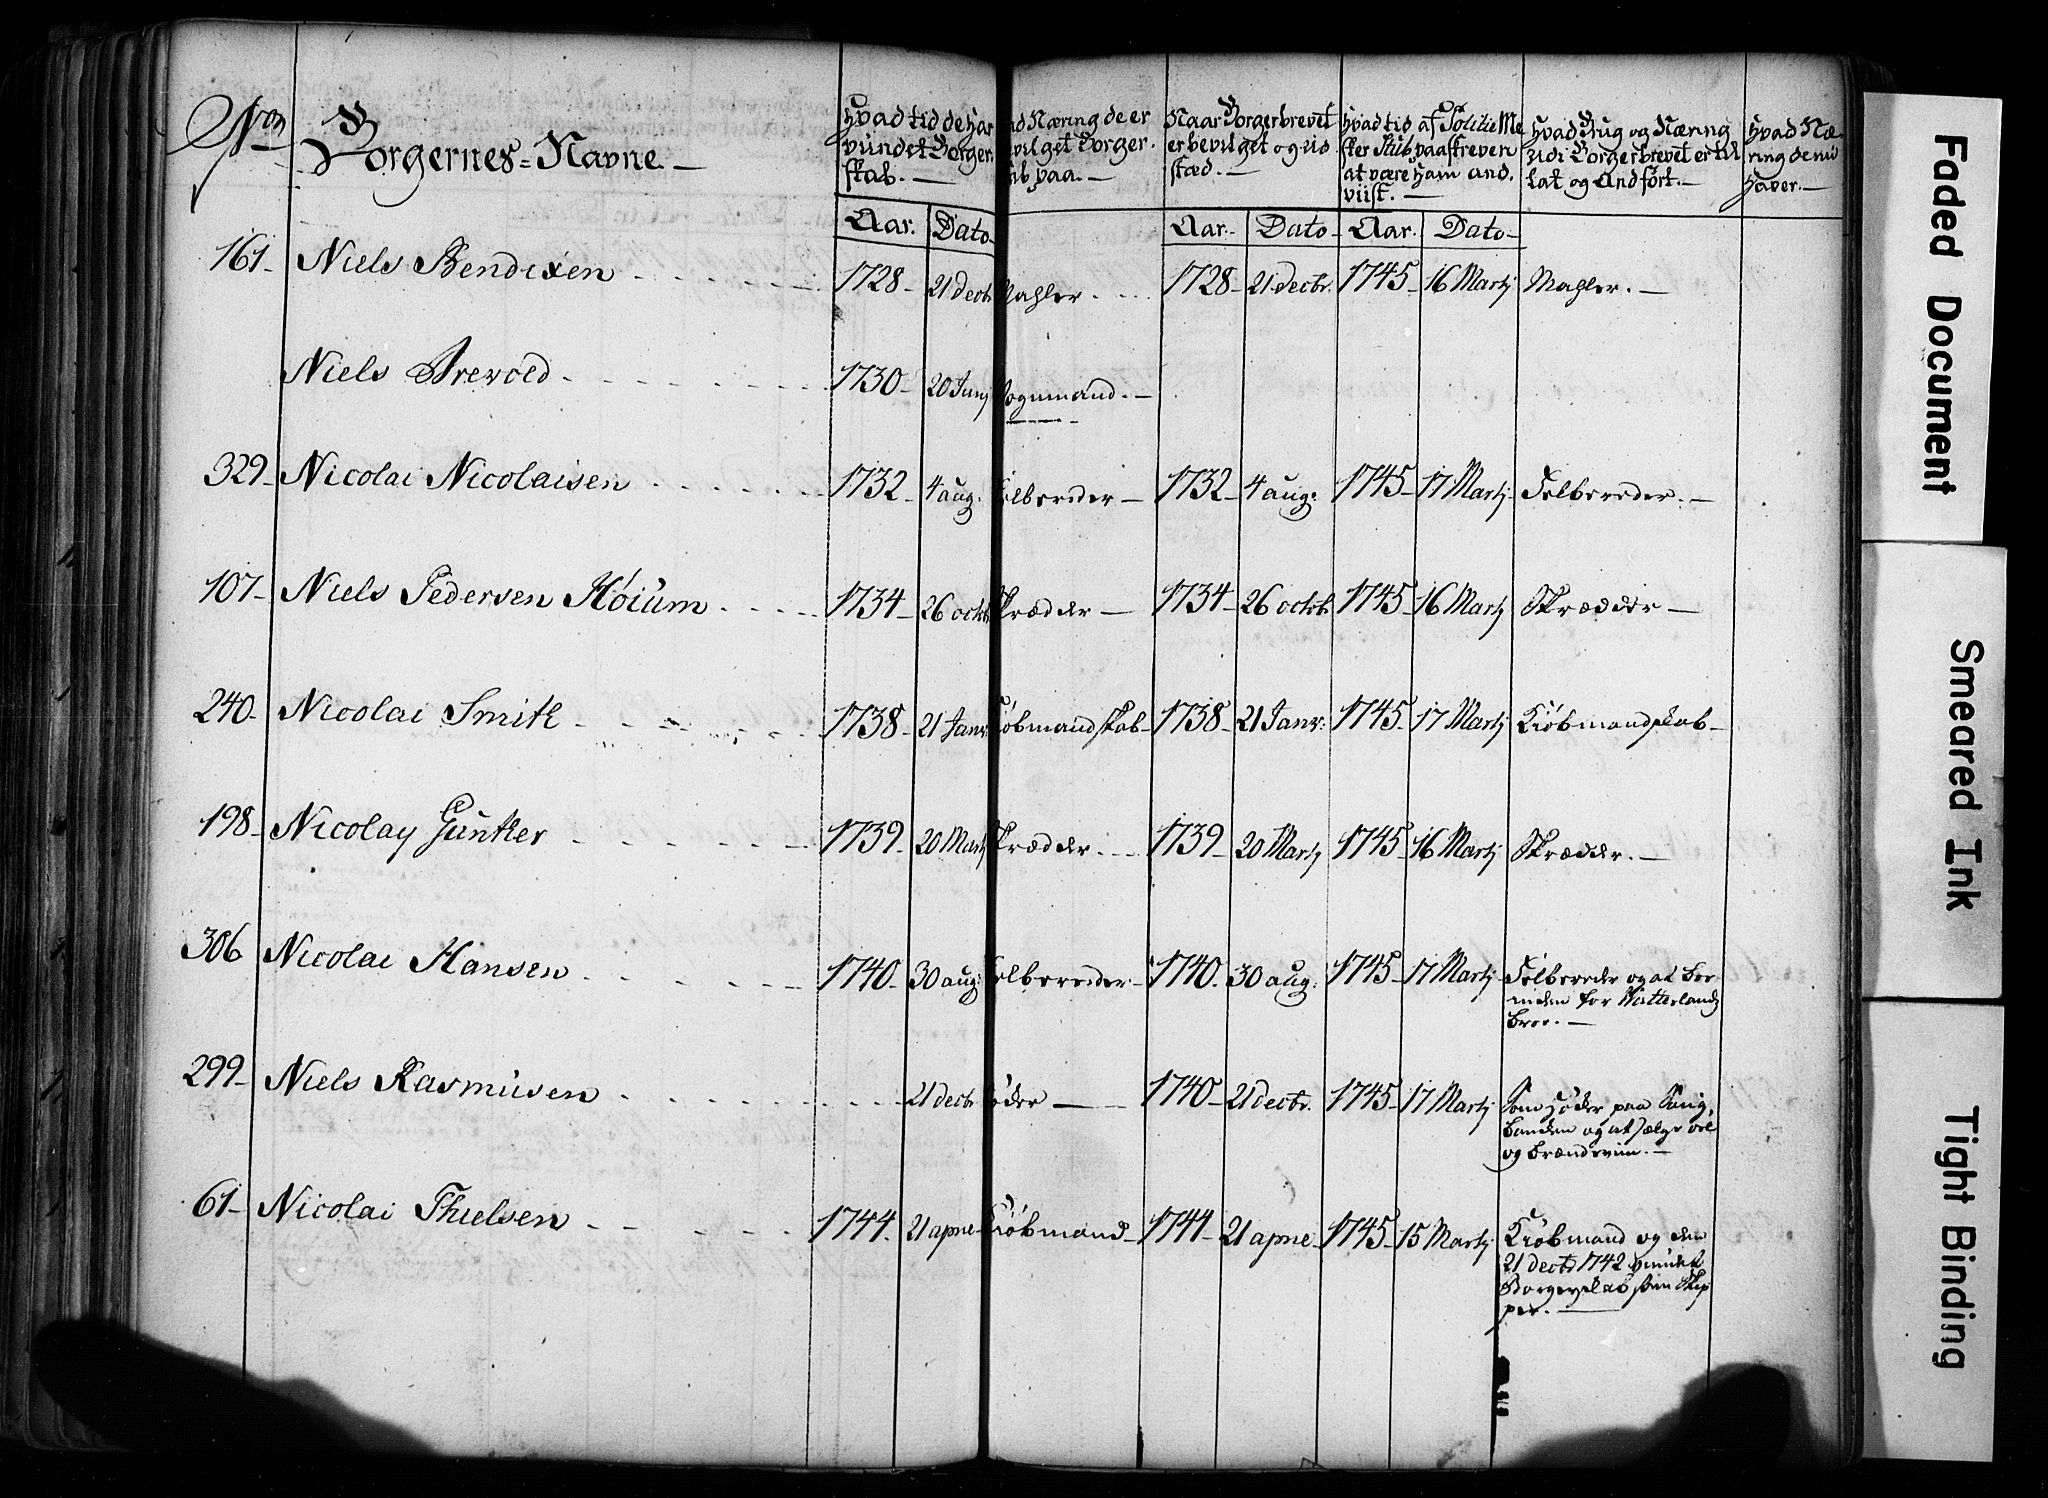 No
Borgernes-Navne
Hvad tid de har
vundet Borger-
skab.
Næring de er
vilget Borger-
paa.
Naar Borgerbrevet
er bevilget og ud
stæd.
Hvad tid af Politie Me
ster Stub paaskreven
at være ham and
viist.
Hvad Brug og Næring
udi Borgerbrevet er til
lat og Andført.
Hvad Næ
ring de nu
haver.
Aar. Dato Aar. Dato Aar. Dato
161 Niels Bendixen 1728 21 Decb Mahler 1728 21 Decbr. 1745 16 Martj Mahler.
Niels Trevold 1730 20 Junj Vognmand.
329 Nicolai Nicolaisen 1732 4 aug: Felbereder 1732 4 aug: 1745 17 Martj Felbereder.
107 Niels Pedersen Høium 1734 26 octb Skrædder 1734 26 octob 1745 16 Martj Skrædder
240 Nicolai Smith 1738 21 Janv. Kiøbmandskab 1738 21 Janv: 1745 17 Martj Kiøbmandskab
198 Nicolay Günther 1739 20 Martj Skrædder 1739 20 Martj 1745 16 Martj Skrædder.
306 Nicolai Hansen 1740 30 aug: Felbereder 1740 30 aug: 1745 17 Martj Felbereder og at boe
inden for Watterlandz
broe.
299 Niels Rasmusen 21 decb Høder 1740 21 decbr. 1745 17 Martj Som Høder paa
og at sælge øel
og brændeviin.
61 Nicolai Thielsen 1744 21 apr Kiøbmand 1744 21 apr 1745 15 Martj Kiøbmand og den
21 decb 1742 vundet
Borgerskab som Skip
per.
Faded Document
Smeared Ink
Tight Binding